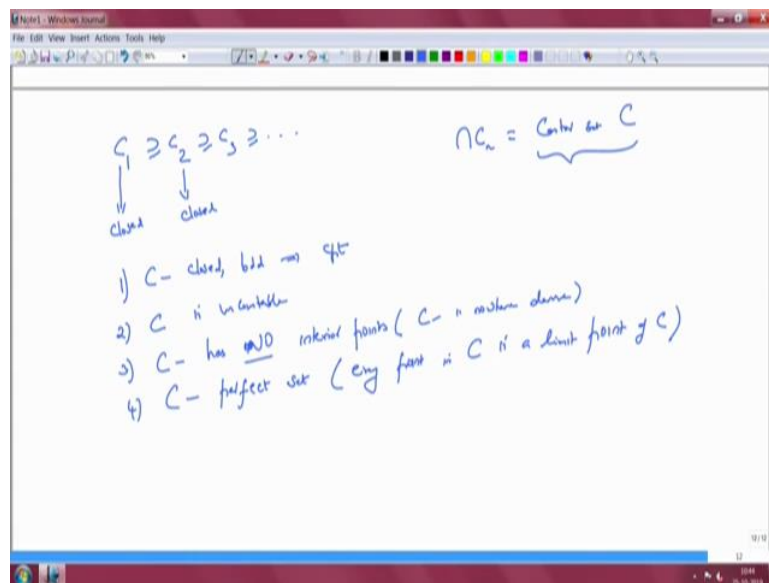 Note1 - Windows Journal
File Edit View Insert Actions Tools Help
C₁ ⊇ C₂ ⊇ C₃ ⊇ ...
∩Cₙ = Cantor set C
closed closed
1) C - closed, bdd ⇒ cpt
2) C is uncountable
3) C - has NO interior points ( C - is nowhere dense )
4) C - perfect set ( every point in C is a limit point of C )
12/12
12
10:44